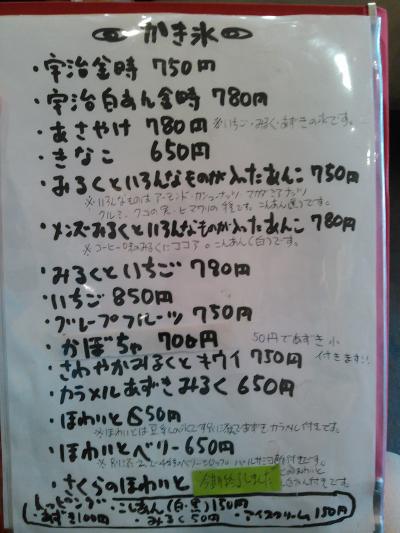 かき氷
・宇治金時 750円
・宇治白あん金時 780円
・あさやけ 780円 ※いちご・みるく・あずきの氷です。
・きなこ 650円
・みるくといろんなものが入ったあんこ 750円
※いろんなものは アーモンド・カシューナッツ マカダミアナッツ
クルミ・クコの実・ヒマワリの種です。こしあん(黒)です。
・メンズみるくといろんなものが入ったあんこ 780円
※コーヒー味のみるくにココア。こしあん(白)です。
・みるくといちご 780円
・いちご 850円
・グレープフルーツ 750円
・かぼちゃ 700円 50円であずき小
付きます!!
・さわやかみるくとキウイ 750円
・カラメルあずきみるく 650円
・ほわいと 650円
※ほわいとは豆乳の氷です。別に あずき カラメル付きです。
・ほわいとベリー 650円
・さくらのほわいと 今期終了しました
トッピング ・こしあん(白・黒)150円
あずき100円 ・みるく50円 ・アイスクリーム150円